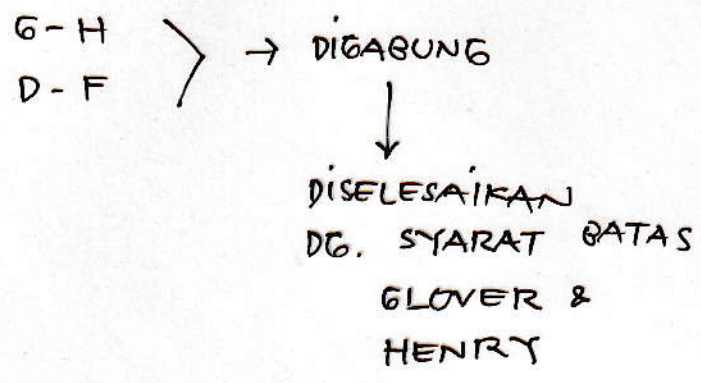 G-H
D-F
→ DIGABUNG
DISELESAIKAN
DG. SYARAT BATAS
GLOVER &
HENRY